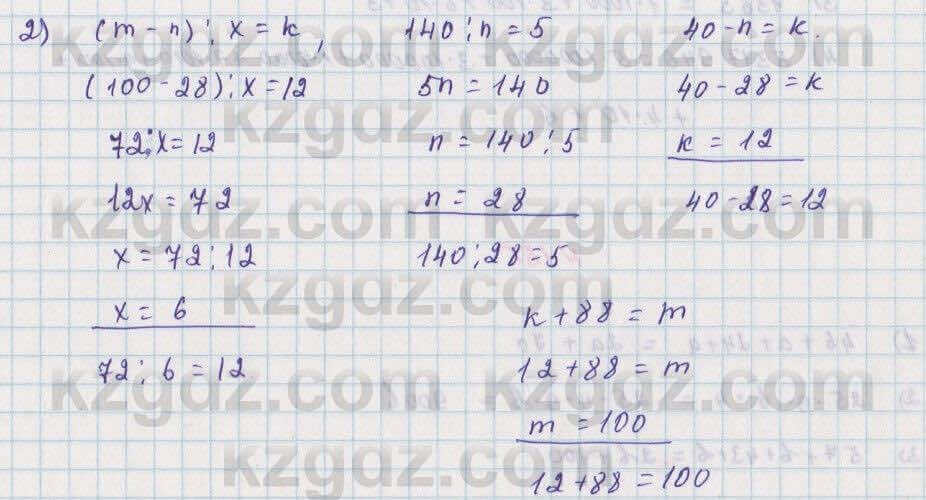 2) (m - n) : x = k,   140 : n = 5   40 - n = k.
(100 - 28) : x = 12   5n = 140   40 - 28 = k
72 : x = 12   n = 140 : 5   k = 12
12x = 72   n = 28   40 - 28 = 12
x = 72 : 12   140 : 28 = 5
x = 6   k + 88 = m
72 : 6 = 12   12 + 88 = m
m = 100
12 + 88 = 100
kzgdz.com
kzgdz.com
kzgdz.com
kzgdz.com
kzgdz.com
kzgdz.com
kzgdz.com